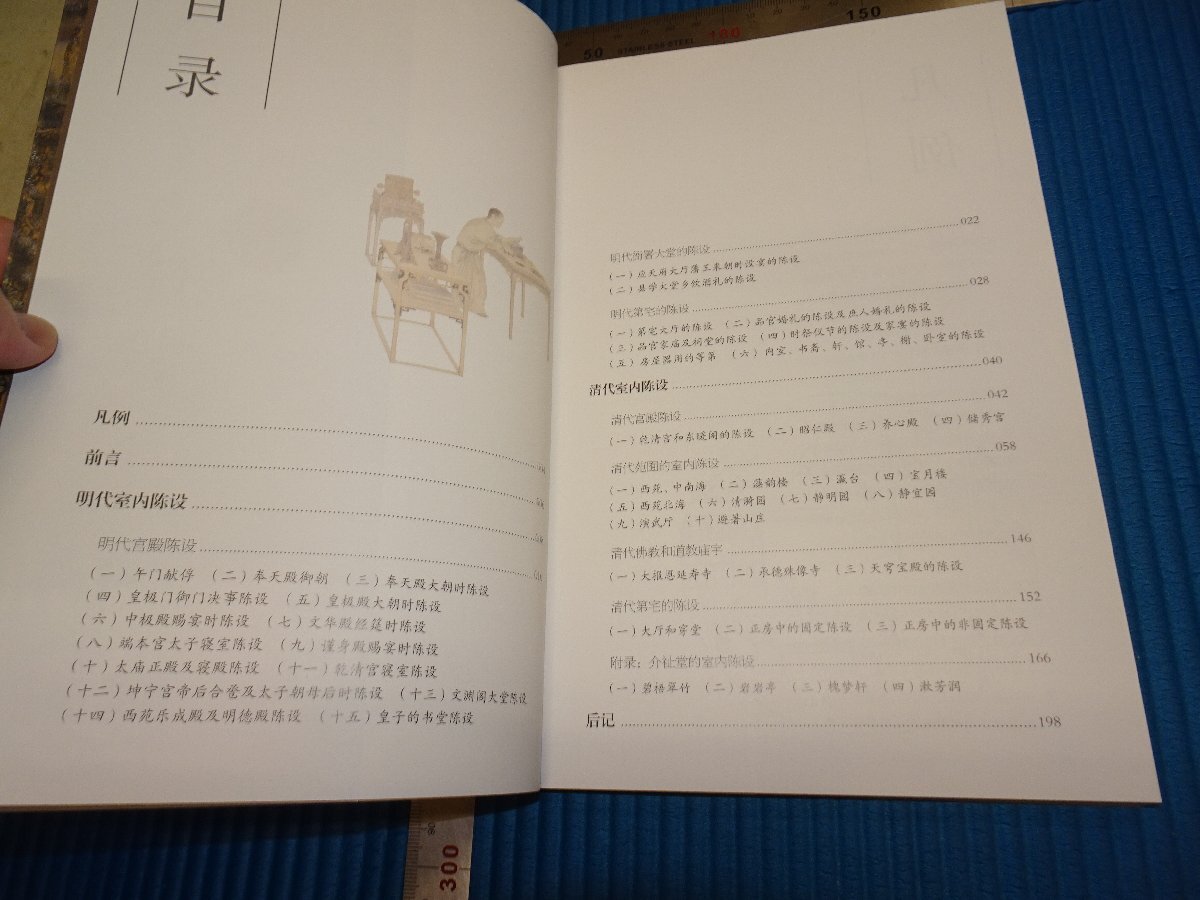 目
录
凡例
前言
明代室内陈设
明代宫殿陈设
（一）午门献俘 （二）奉天殿御朝 （三）奉天殿大朝时陈设
（四）皇极门御门决事陈设 （五）皇极殿大朝时陈设
（六）中极殿赐宴时陈设 （七）文华殿经筵时陈设
（八）端本宫太子寝室陈设 （九）谨身殿赐宴时陈设
（十）太庙正殿及寝殿陈设 （十一）乾清宫寝室陈设
（十二）坤宁宫帝后合卺及太子朝母后时陈设 （十三）文渊阁大堂陈设
（十四）西苑乐成殿及明德殿陈设 （十五）皇子的书堂陈设
明代衙署大堂的陈设 022
（一）应天府大厅藩王来朝时设宴的陈设
（二）县学大堂乡饮酒礼的陈设
明代第宅的陈设 028
（一）第宅大厅的陈设 （二）品官婚礼的陈设及庶人婚礼的陈设
（三）品官家庙及祠堂的陈设 （四）时祭仪节的陈设及家宴的陈设
（五）房屋器用的等第 （六）内室、书斋、轩、馆、亭、榭、卧室的陈设
清代室内陈设 040
清代宫殿陈设 042
（一）乾清宫和东暖阁的陈设 （二）昭仁殿 （三）养心殿 （四）储秀宫
清代苑囿的室内陈设 058
（一）西苑、中南海 （二）蕴韵楼 （三）瀛台 （四）宝月楼
（五）西苑北海 （六）清漪园 （七）静明园 （八）静宜园
（九）演武厅 （十）避暑山庄
清代佛教和道教庙宇 146
（一）大报恩延寿寺 （二）承德殊像寺 （三）天穹宝殿的陈设
清代第宅的陈设 152
（一）大厅和穿堂 （二）正房中的固定陈设 （三）正房中的非固定陈设
附录：介祉堂的室内陈设 166
（一）碧梧翠竹 （二）岩岩亭 （三）槐梦轩 （四）漱芳润
后记 198
50 STAINLESS-STEEL 100 150
300